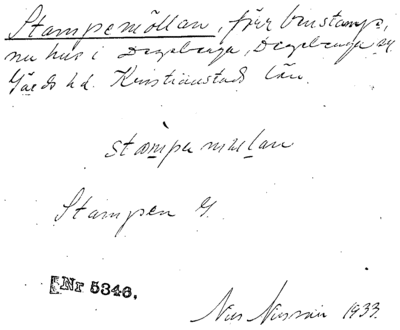 Stampemöllan, förr benstamp,
nu hus i Degeberga, Degeberga sn,
Gärds hd. Kristianstads län.
stampemölan
Stampen G.
Nr 5346.
Nils Nilsson 1933.